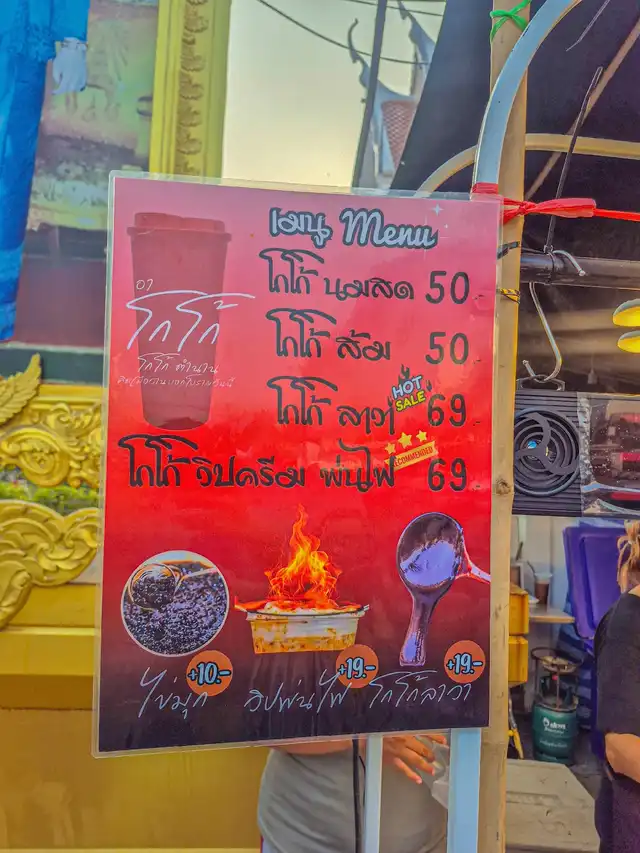 เมนู Menu
โกโก้ นมสด 50
โกโก้ ส้ม 50
โกโก้ ลาวา HOT SALE 69
โกโก้ วิปครีม พ่นไฟ RECOMMENDED 69
โกโก้
โกโก้ ตำนาน
+10.-
+19.-
+19.-
ไข่มุก วิปพ่นไฟ โกโก้ลาวา